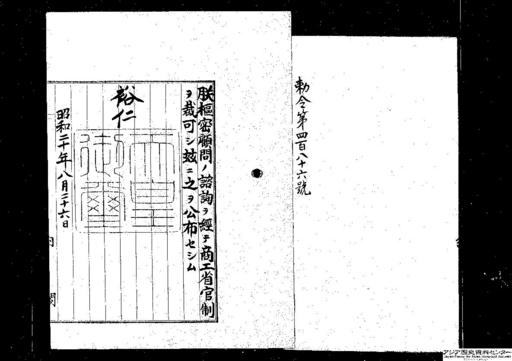 勅令第四百八十六號
朕樞密顧問ノ諮詢ヲ經テ商工省官制
ヲ裁可シ玆ニ之ヲ公布セシム
裕仁
天皇御璽
昭和二十年八月二十六日
閣
アジア歴史資料センター